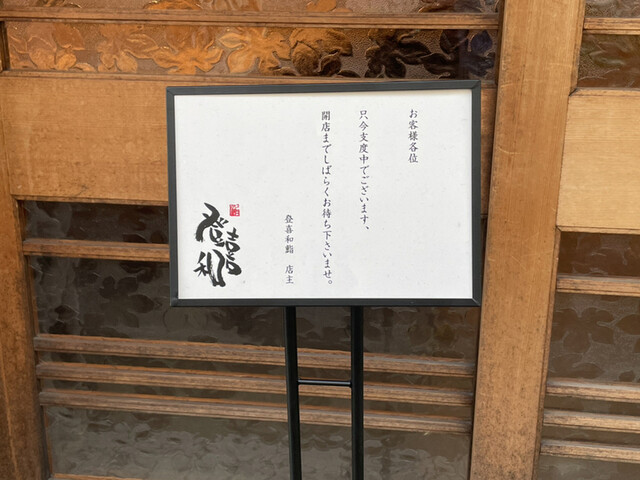 お客様各位
只今支度中でございます、
開店までしばらくお待ち下さいませ。
登喜和鮨 店主
登喜和